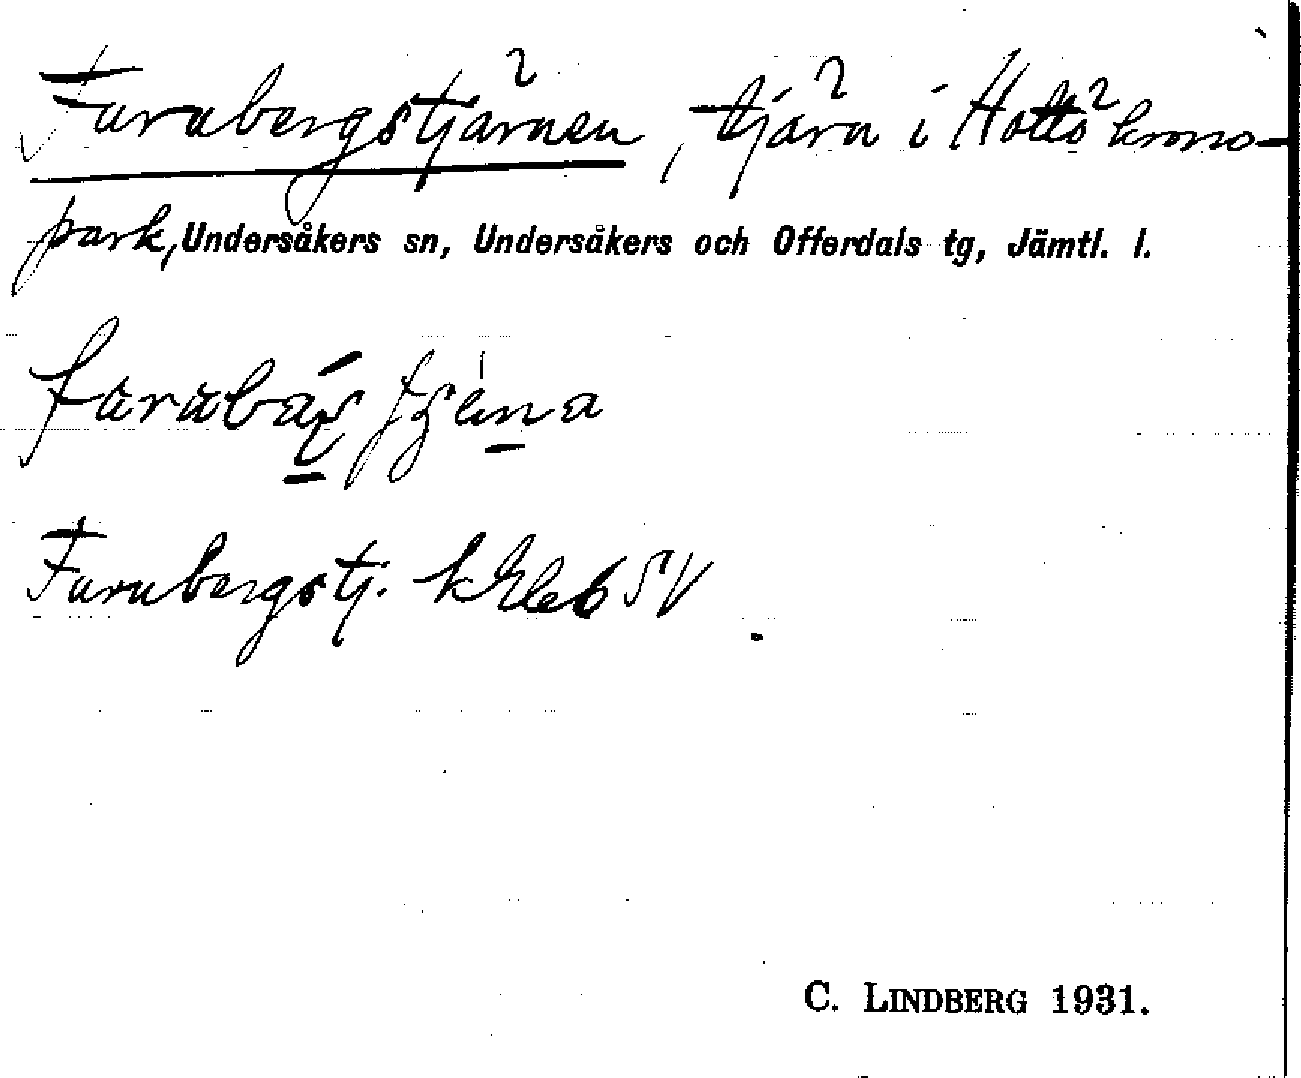 Furubergstjärnen, tjärn i Hottö krono-
park, Undersåkers sn, Undersåkers och Offerdals tg, Jämtl. l.
Furubergstj. k Ebl 6 SV
C. LINDBERG 1931.